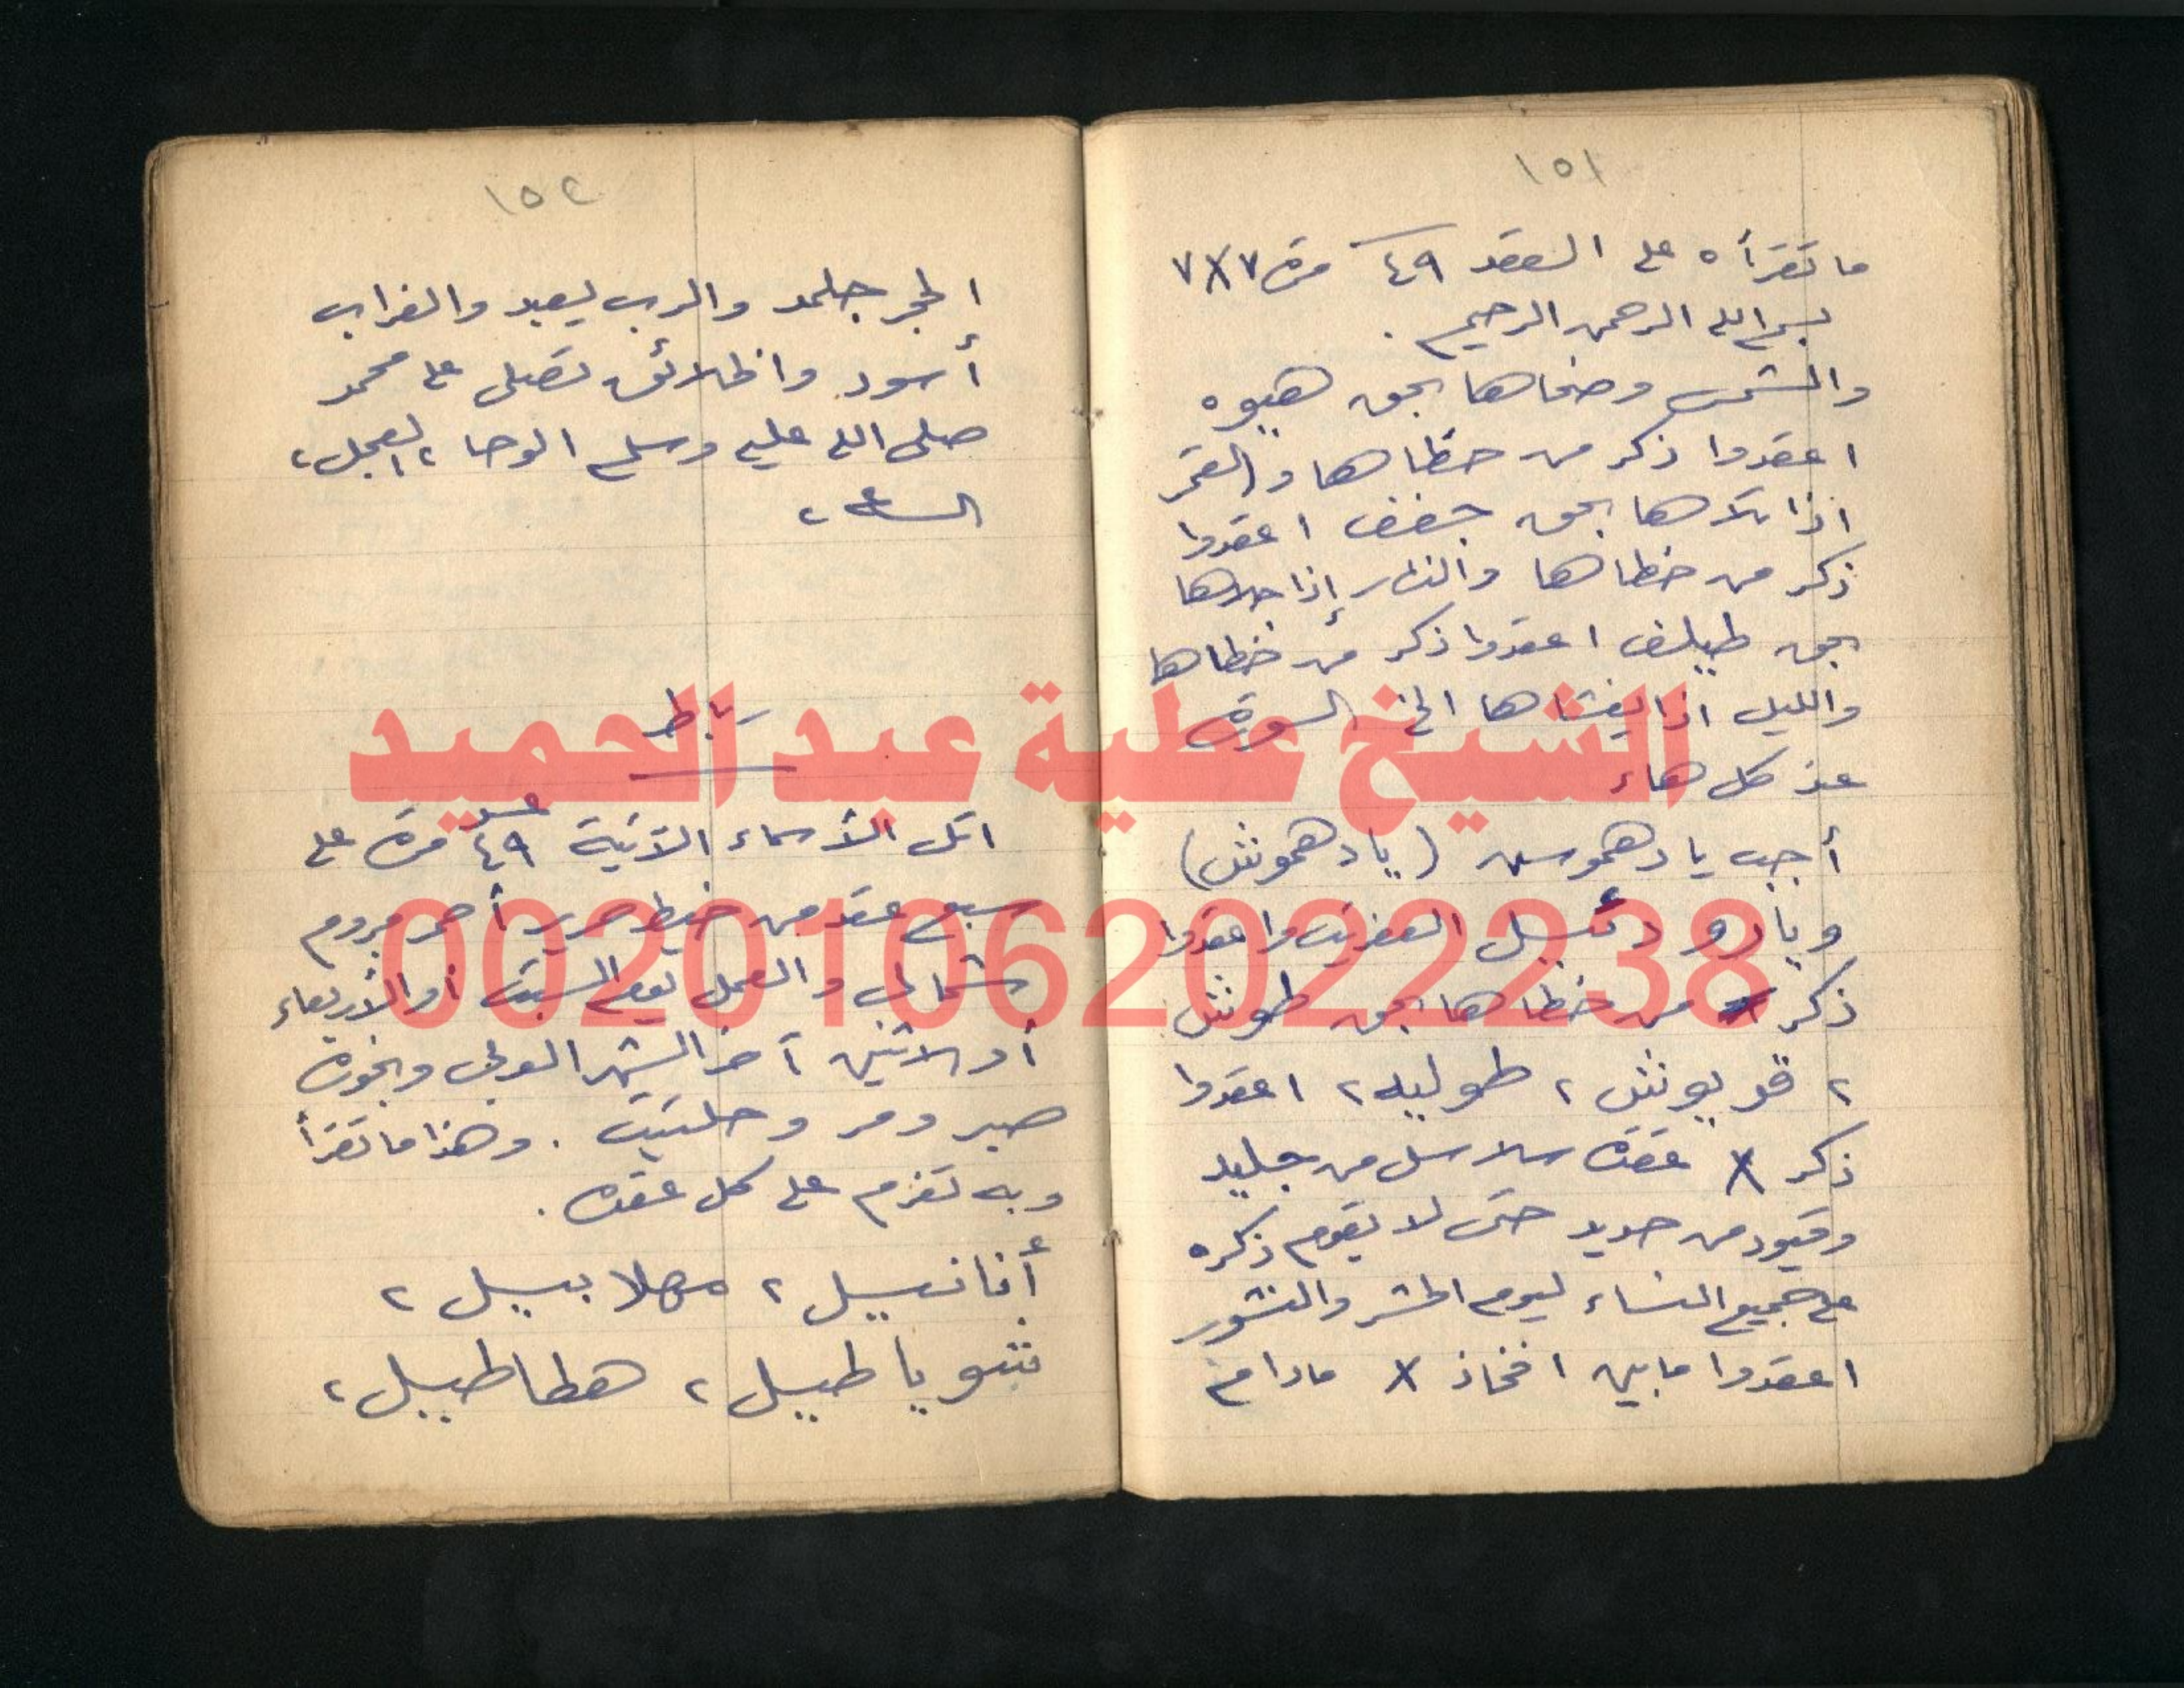 ١٥١
ما تقرأه على العقد ٤٩ مرة ٧×٧
بسم الله الرحمن الرحيم .
والشمس وضحاها بحق هيوه
اعقدوا ذكر من خطاها والقمر
اذا تلاها بحق جفف اعقدوا
ذكر من خطاها والنهار إذا جلاها
بحق طيلف اعقدوا ذكر من خطاها
والليل اذا يغشاها الخ السورة
عند كل هاء
أجب يا دهموس (يا دهموش)
ويا العفريت واعقدوا
ذكر من خطاها بحق طوش
٢ قويوش ٢ طوليه ٢ اعقدوا
ذكر X عقدة سلاسل من جليد
وقيود من حديد حتى لا يقوم ذكره
على جميع النساء ليوم الحشر والنشور
اعقدوا ما بين افخاذ X مادام
١٥٢
الحجر جلمد والرب يعبد والغراب
أسود والخلائق تصلى على محمد
صلى الله عليه وسلم الوحا ٢ العجل ٢
الساعة ٢
رباط
اتل الأسماء الآتية ٤٩ مرة على
سبع عقد من خيط حرير أحمر مبروم
شمالى والعمل يوم السبت أو الأربعاء
أو الاثنين آخر الشهر العربى وبخورة
صبر ومر وحلتيت . وهذا ما تقرأ
وبه تعزم على كل عقدة .
أنانيل ٢ مهلابيل ٢
شوياطيل ٢ هطاطيل ٢
الشيخ عطية عبد الحميد
00201062022238